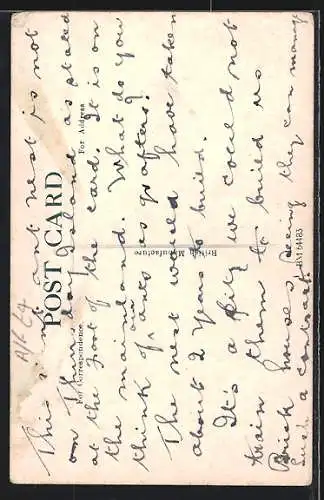 POST CARD
For Correspondence
For Address
British Manufacture
BM 64483
This ant nest is not
on Thursday Island as stated
at the foot of the card. It is on
the mainland. What do you
think of our ants as grafters?
The nest would have taken
about 2 years to build.
It's a pity we could not
train them to build us
Brick houses, seeing they can manage
such a contract.